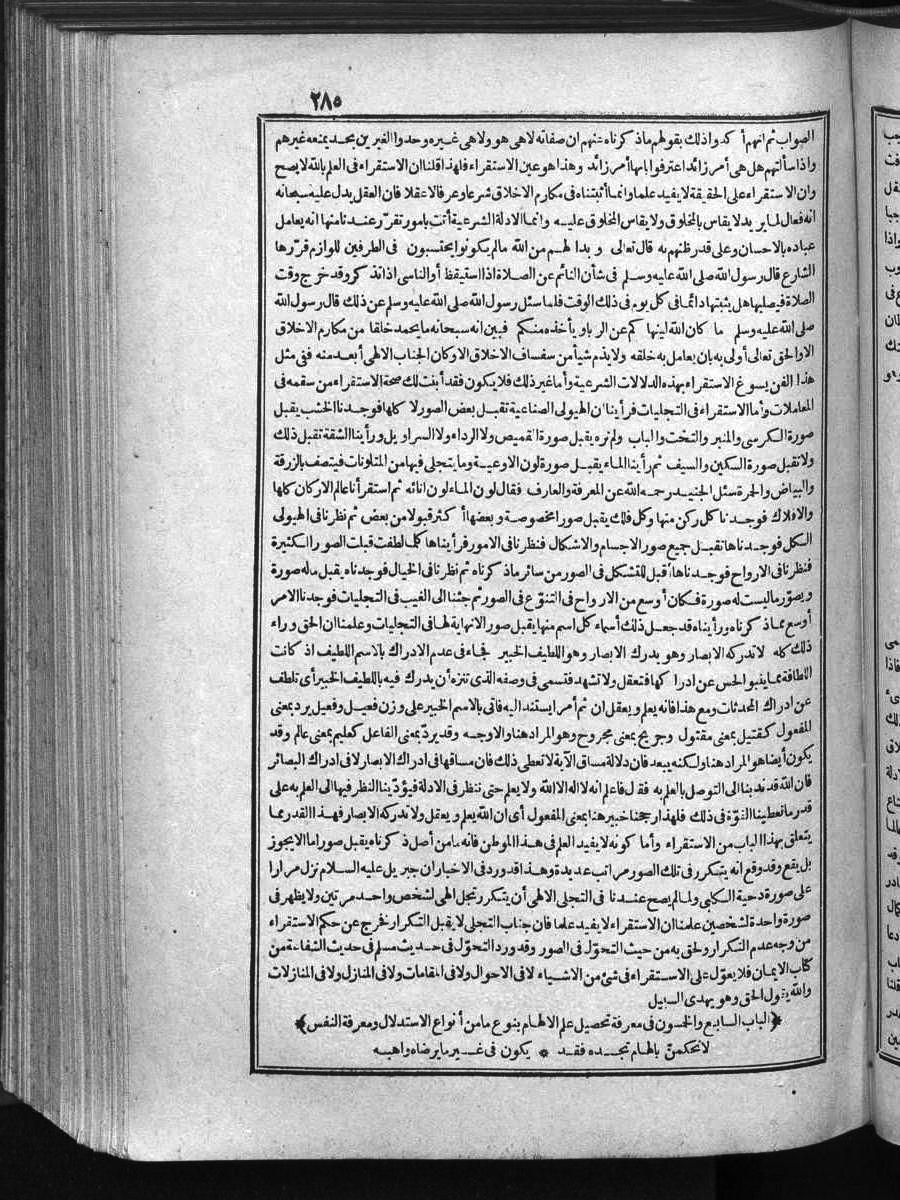 ٢٨٥
الصواب ثم انهم أكدوا ذلك بقولهم ماذكرناه عنهم ان صفاته لاهى هو ولاهى غيره وحدوا الغيرين بحد يمنعه غيرهم
واذا سألتهم هل هى أمر زائد اعترفوا بانها أمر زائد وهذا هو عين الاستقراء فلهذا قلنا ان الاستقراء فى العلم بالله لا يصح
وان الاستقراء على الحقيقة لا يفيد علما وانما أثبتناه فى مكارم الاخلاق شرعا وعرفا لا عقلا فان العقل يدل عليه سبحانه
انه فعال لما يريد لا يقاس بالمخلوق ولا يقاس المخلوق عليه وانما الادلة الشرعية أتت بامور تقرر عندنا منها انه يعامل
عباده بالاحسان وعلى قدر ظنهم به قال تعالى وبدا لهم من الله مالم يكونوا يحتسبون فى الطرفين للوازم قررها
الشارع قال رسول الله صلى الله عليه وسلم فى شأن النائم عن الصلاة اذا استيقظ أو الناسى اذا تذكر وقد خرج وقت
الصلاة فيصليها هل يثبتها دائما فى كل يوم فى ذلك الوقت فلما سئل رسول الله صلى الله عليه وسلم عن ذلك قال رسول الله
صلى الله عليه وسلم ما كان الله لينهاكم عن الربا ويأخذه منكم فبين انه سبحانه ما يحمد خلقا من مكارم الاخلاق
الا والحق تعالى أولى به بان يعامل به خلقه ولا يذم شيأ من سفساف الاخلاق الا وكان الجناب الالهى أبعد منه ففى مثل
هذا الفن يسوغ الاستقراء بهذه الدلالات الشرعية وأما غير ذلك فلا يكون فقد أبنت لك صحة الاستقراء من سقمه فى
المعاملات وأما الاستقراء فى التجليات فرأينا ان الهيولى الصناعية تقبل بعض الصور لا كلها فوجدنا الخشب يقبل
صورة الكرسى والمنبر والتخت والباب ولم نره يقبل صورة القميص ولا الرداء ولا السراويل ورأينا الشقة تقبل ذلك
ولا تقبل صورة السكين والسيف ثم رأينا الماء يقبل صورة لون الاوعية وما يتجلى فيها من المتلونات فيتصف بالزرقة
والبياض والحمرة سئل الجنيد رحمه الله عن المعرفة والعارف فقال لون الماء لون انائه ثم استقرأنا عالم الاركان كلها
والافلاك فوجدنا كل ركن منها وكل فلك يقبل صورا مخصوصة وبعضها أكثر قبولا من بعض ثم نظرنا فى الهيولى
الكل فوجدناها تقبل جميع صور الاجسام والاشكال فنظرنا فى الامور فرأيناها كلما لطفت قبلت الصور الكثيرة
فنظرنا فى الارواح فوجدناها أقبل للتشكل فى الصور من سائر ماذكرناه ثم نظرنا فى الخيال فوجدناه يقبل ماله صورة
ويصور ما ليست له صورة فكان أوسع من الارواح فى التنوع فى الصور ثم جئنا الى الغيب فى التجليات فوجدنا الامر
أوسع مما ذكرناه ورأيناه قد جعل ذلك أسماء كل اسم منها يقبل صورا لانهاية لها فى التجليات وعلمنا ان الحق وراء
ذلك كله لا تدركه الابصار وهو يدرك الابصار وهو اللطيف الخبير فجاء فى عدم الادراك بالاسم اللطيف اذ كانت
اللطافة مما ينبو الحس عن ادراكها فتعقل ولا تشهد فتسمى فى وصفه الذى تنزه أن يدرك فيه باللطيف الخبير أى تلطف
عن ادراك المحدثات ومع هذا فانه يعلم ويعقل ان ثم أمرا يستند اليه فاتى بالاسم الخبير على وزن فعيل وفعيل يرد بمعنى
المفعول كقتيل بمعنى مقتول وجريح بمعنى مجروح وهو المراد هنا والاوجه وقد يرد بمعنى الفاعل كعليم بمعنى عالم وقد
يكون أيضا هو المراد هنا ولكنه يبعد فان دلالة مساق الآية لا تعطى ذلك فان مساقها فى ادراك الابصار لا فى ادراك البصائر
فان الله قد ندبنا الى التوصل بالعلم به فقال فاعلم انه لا اله الا الله ولا يعلم حتى ننظر فى الادلة فيؤدينا النظر فيها الى العلم به على
قدر ما تعطينا القوة فى ذلك فلهذا رجحنا خبير هنا بمعنى المفعول أى ان الله يعلم ويعقل ولا تدركه الابصار فهذا القدر مما
يتعلق بهذا الباب من الاستقراء وأما كونه لا يفيد العلم فى هذا الموطن فانه مامن أصل ذكرناه يقبل صوراما الا يجوز
بل يقع وقد وقع انه يتكرر فى تلك الصور مراتب عديدة وهذا قد ورد فى الاخبار ان جبريل عليه السلام نزل مرارا
على صورة دحية الكلبى ولما لم يصح عندنا فى التجلى الالهى أن يتكرر تجل الهى لشخص واحد مرتين ولا يظهر فى
صورة واحدة لشخصين علمنا ان الاستقراء لا يفيد علما فان جناب التجلى لا يقبل التكرار فخرج عن حكم الاستقراء
من وجه عدم التكرار ولحق به من حيث التحول فى الصور وقد ورد التحول فى حديث مسلم فى حديث الشفاعة من
كتاب الايمان فلا يعول على الاستقراء فى شئ من الاشياء لا فى الاحوال ولا فى المقامات ولا فى المنازل ولا فى المنازلات
والله يقول الحق وهو يهدى السبيل
﴿الباب السابع والخمسون فى معرفة تحصيل علم الالهام بنوع مامن أنواع الاستدلال ومعرفة النفس﴾
لا تحكمن بالهام تجده فقد * يكون فى غير ما يرضاه واهبه